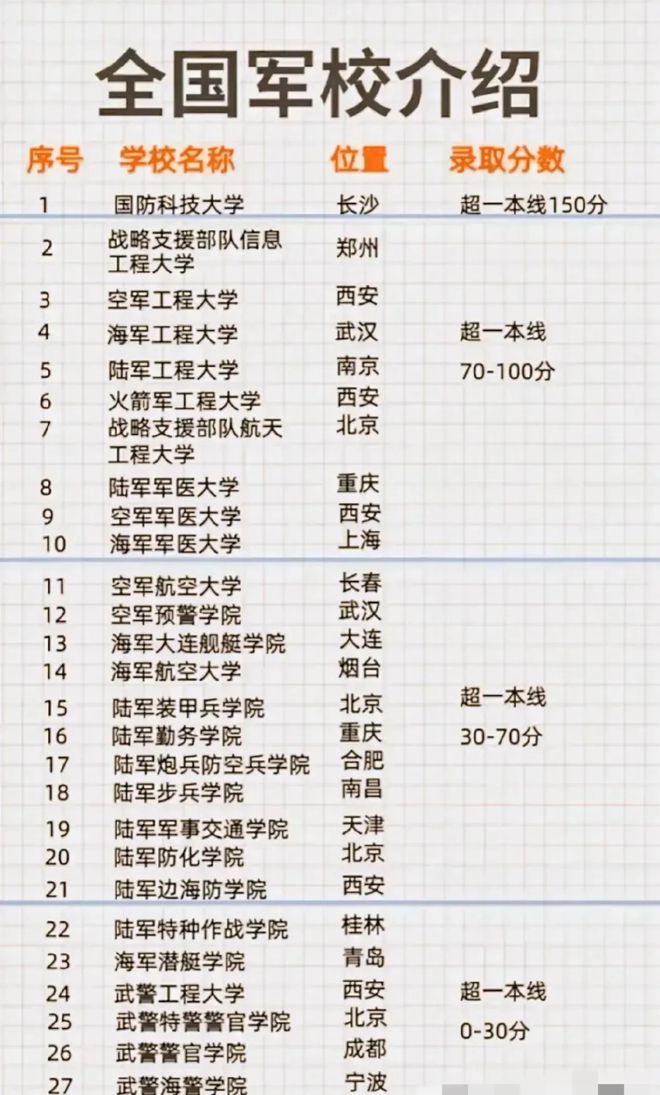 全国军校介绍
序号 学校名称 位置 录取分数
1 国防科技大学 长沙 超一本线150分
2 战略支援部队信息 郑州
工程大学
3 空军工程大学 西安
4 海军工程大学 武汉 超一本线
5 陆军工程大学 南京 70-100分
6 火箭军工程大学 西安
7 战略支援部队航天 北京
工程大学
8 陆军军医大学 重庆
9 空军军医大学 西安
10 海军军医大学 上海
11 空军航空大学 长春
12 空军预警学院 武汉
13 海军大连舰艇学院 大连
14 海军航空大学 烟台
15 陆军装甲兵学院 北京 超一本线
16 陆军勤务学院 重庆 30-70分
17 陆军炮兵防空兵学院 合肥
18 陆军步兵学院 南昌
19 陆军军事交通学院 天津
20 陆军防化学院 北京
21 陆军边海防学院 西安
22 陆军特种作战学院 桂林
23 海军潜艇学院 青岛
24 武警工程大学 西安 超一本线
25 武警特警警官学院 北京 0-30分
26 武警警官学院 成都
27 武警海警学院 宁波